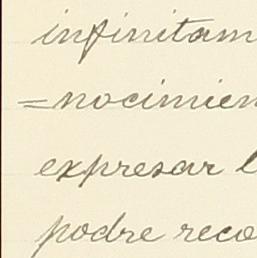 infinitam
=nocimien
expresar l
podre reco